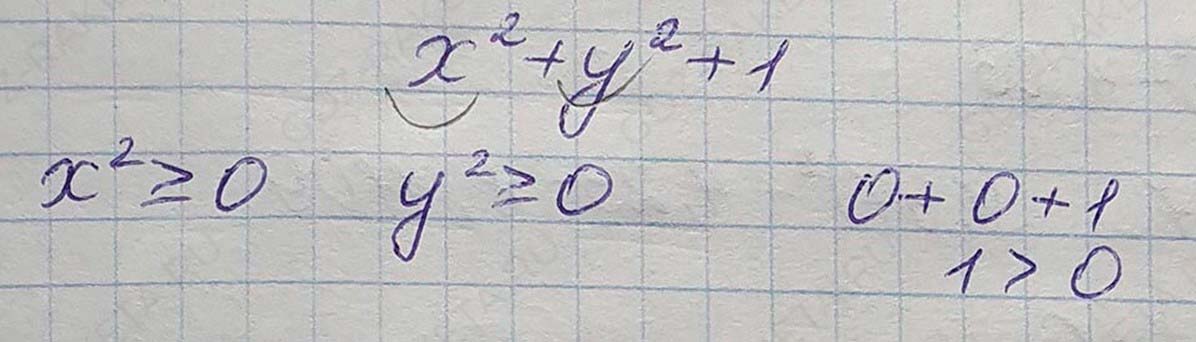 x² + y² + 1
x² ≥ 0 y² ≥ 0 0 + 0 + 1
1 > 0